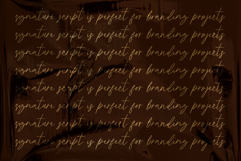 signature script is perfect for branding projects
signature script is perfect for branding projects
signature script is perfect for branding projects
signature script is perfect for branding projects
signature script is perfect for branding projects
signature script is perfect for branding projects
signature script is perfect for branding projects
signature script is perfect for branding projects